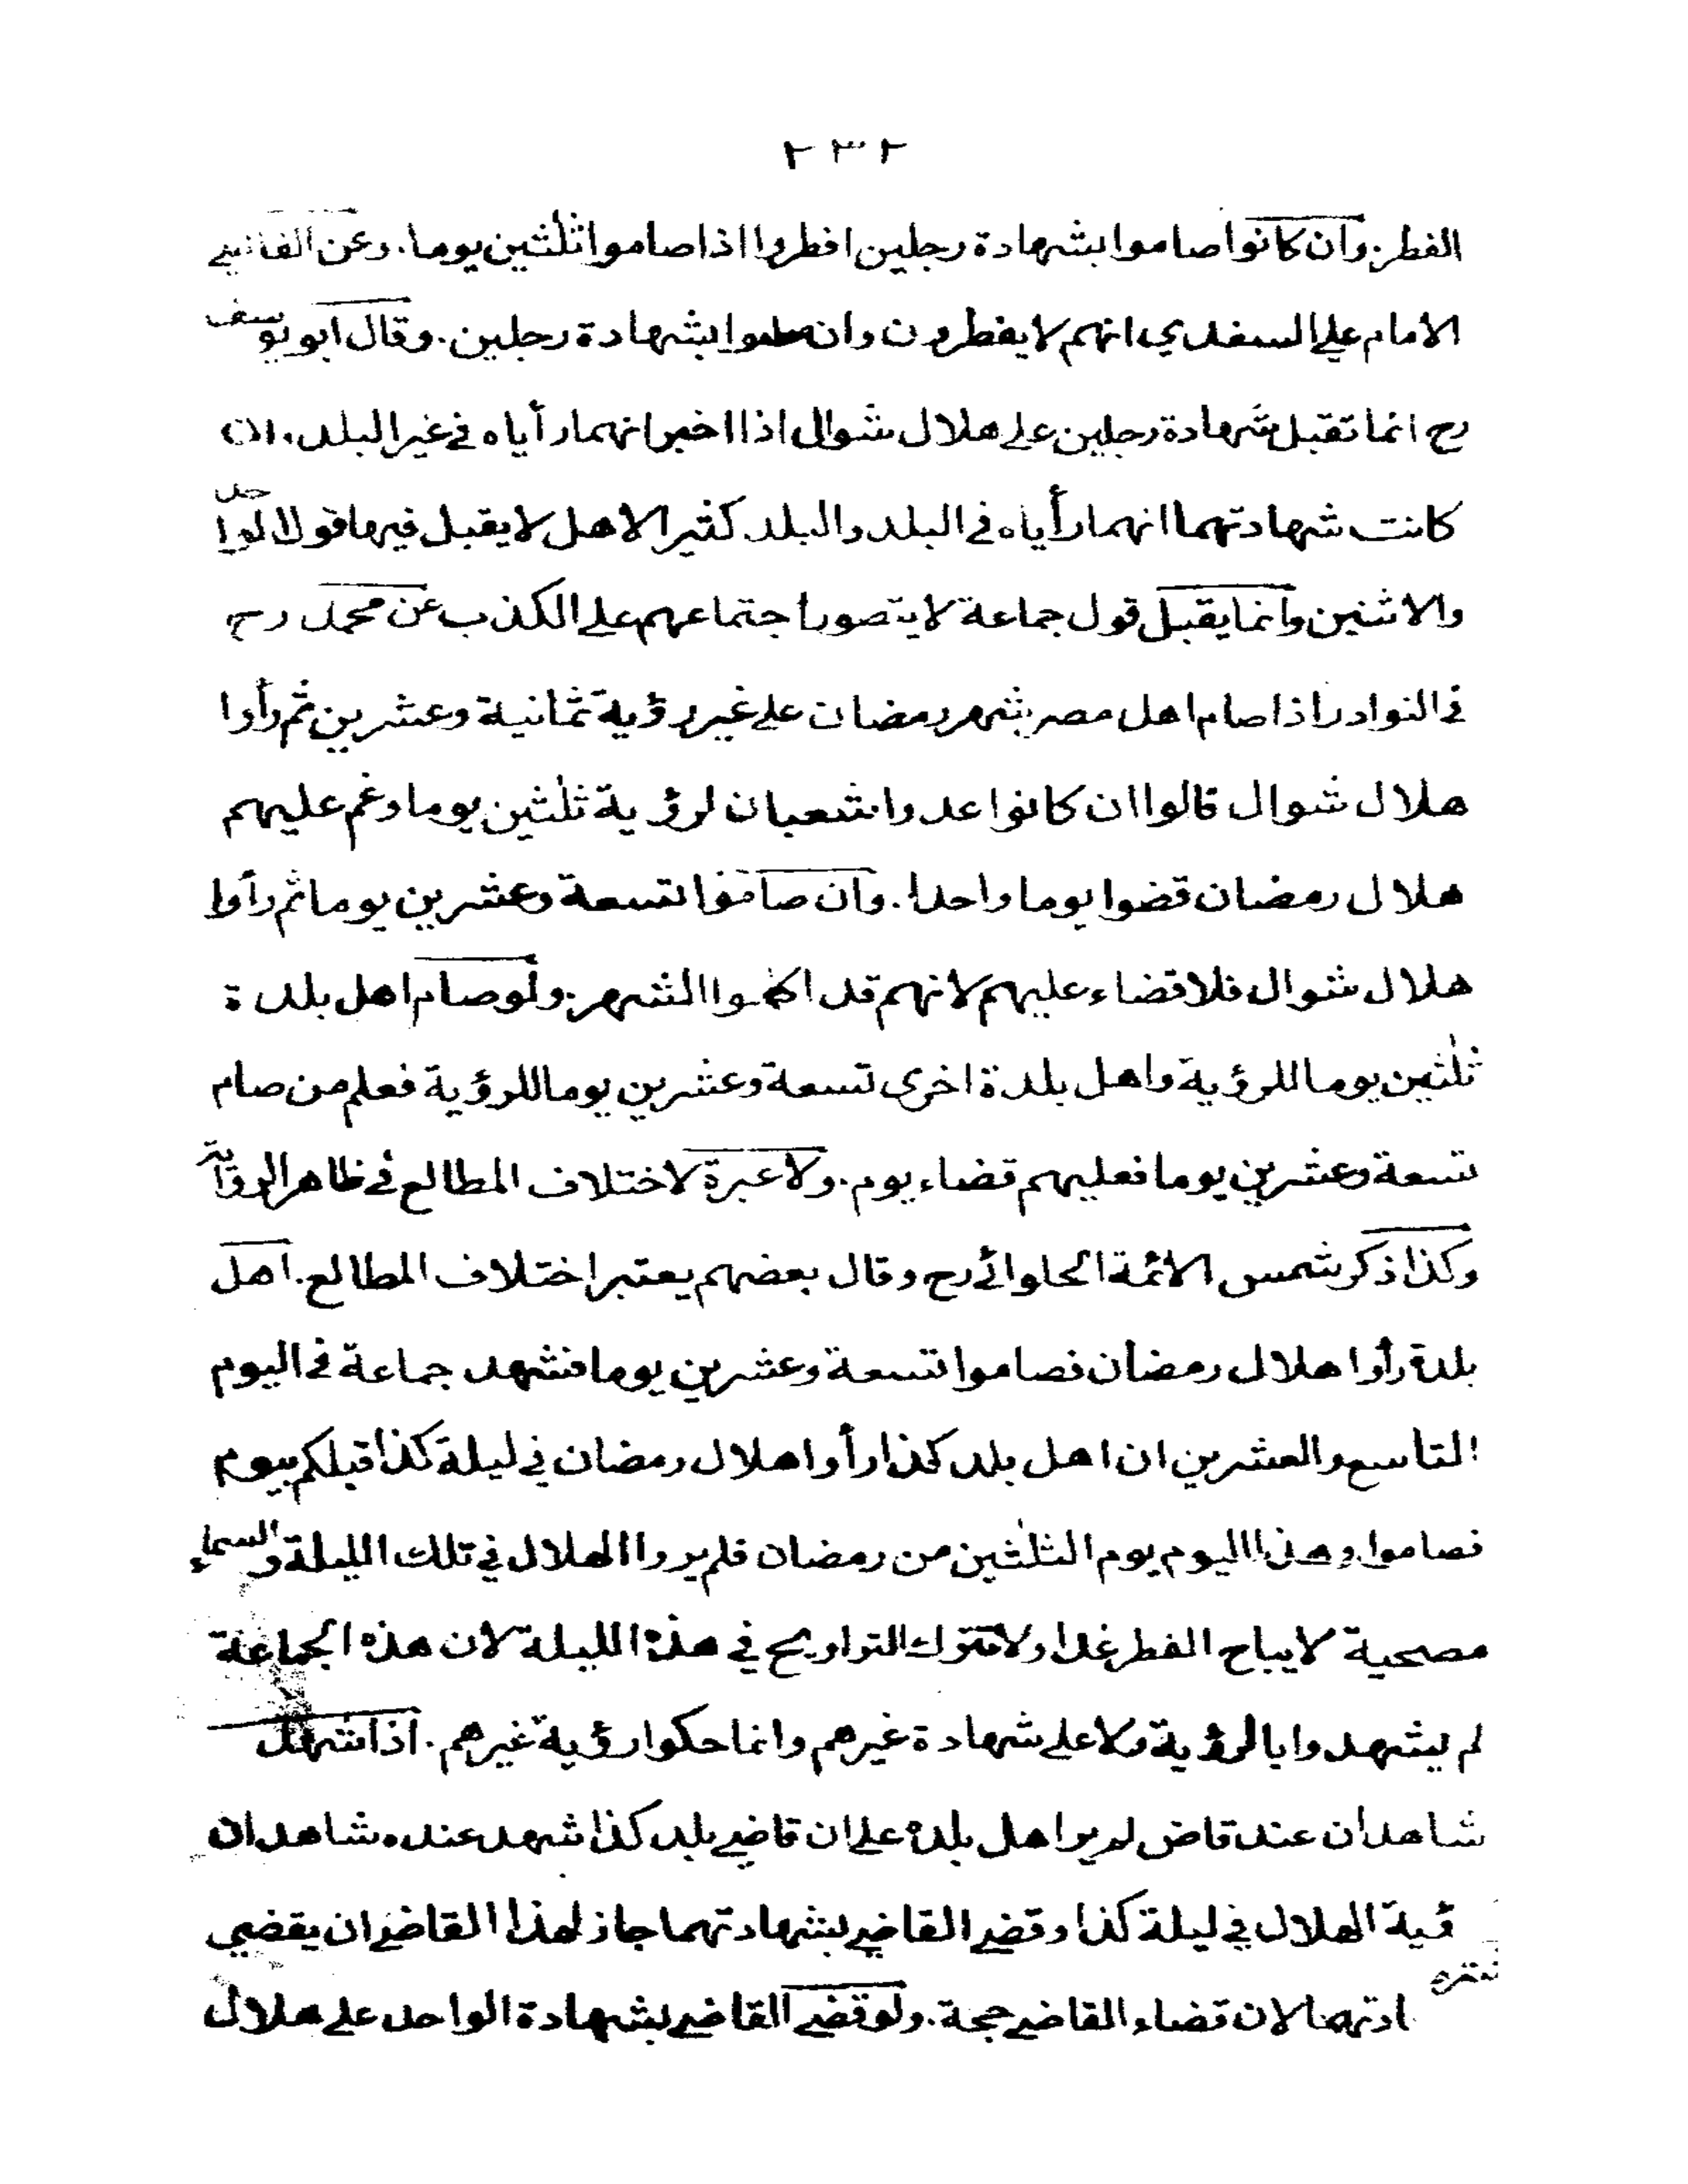 ٢٣٢
الفطر. وان كانوا صاموا بشهادة رجلين افطروا اذا صاموا ثلٰثين يوما. وعن القاضي
الامام علي السغدي انهم لا يفطرون وان صاموا بشهادة رجلين. وقال ابو يوسف
رح انما تقبل شهادة رجلين على هلال شوال اذا اخبرا انهما رأياه في غير البلد. وان
كانت شهادتهما انهما رأياه في البلد والبلد كثير الاهل لا يقبل فيها قول الواحد
والاثنين وانما يقبل قول جماعة لا يتصور اجتماعهم على الكذب عن محمد رح
في النوادر اذا صام اهل مصر شهر رمضان على غير رؤية ثمانية وعشرين ثم رأوا
هلال شوال قالوا ان كانوا عدوا شعبان لرؤية ثلٰثين يوما وغم عليهم
هلال رمضان قضوا يوما واحدا. وان صاموا تسعة وعشرين يوما ثم رأوا
هلال شوال فلا قضاء عليهم لانهم قد اكملوا الشهر. ولو صام اهل بلدة
ثلٰثين يوما للرؤية واهل بلدة اخرى تسعة وعشرين يوما للرؤية فعلم من صام
تسعة وعشرين يوما فعليهم قضاء يوم. ولا عبرة لاختلاف المطالع في ظاهر الرواية
وكذا ذكر شمس الائمة الحلوائي رح وقال بعضهم يعتبر اختلاف المطالع. اهل
بلدة رأوا هلال رمضان فصاموا تسعة وعشرين يوما فشهد جماعة في اليوم
التاسع والعشرين ان اهل بلد كذا رأوا هلال رمضان في ليلة كذا قبلكم بيوم
فصاموا وهذا اليوم يوم الثلٰثين من رمضان فلم يروا الهلال في تلك الليلة والسماء
مصحية لا يباح الفطر غدا ولا تترك التراويح في هذه الليلة لان هذه الجماعة
لم يشهدوا بالرؤية ولا على شهادة غيرهم وانما حكوا رؤية غيرهم. اذا شهد
شاهدان عند قاض لم ير اهل بلده على ان قاضي بلد كذا شهد عنده شاهدان
ؤية الهلال في ليلة كذا وقضى القاضي بشهادتهما جاز لهذا القاضي ان يقضي
ادتهما لان قضاء القاضي حجة. ولو قضى القاضي بشهادة الواحد على هلال